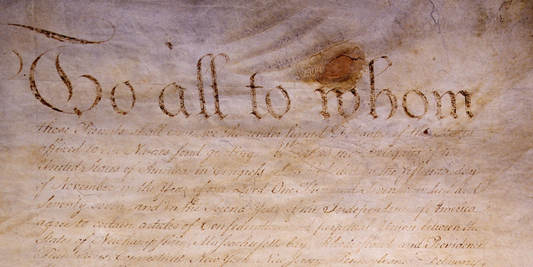 To all to whom
these Presents shall come, we the under signed Delegates of the States
affixed to our Names send greeting. Whereas the Delegates of the
United States of America in Congress assembled did on the fifteenth day
of November in the Year of our Lord One Thousand Seven Hundred and
Seventy seven, and in the Second Year of the Independence of America
agree to certain articles of Confederation and perpetual Union between the
States of Newhampshire, Massachusetts-bay, Rhodeisland and Providence
Connecticut, New York, New Jersey, Pennsylvania, Delaware,